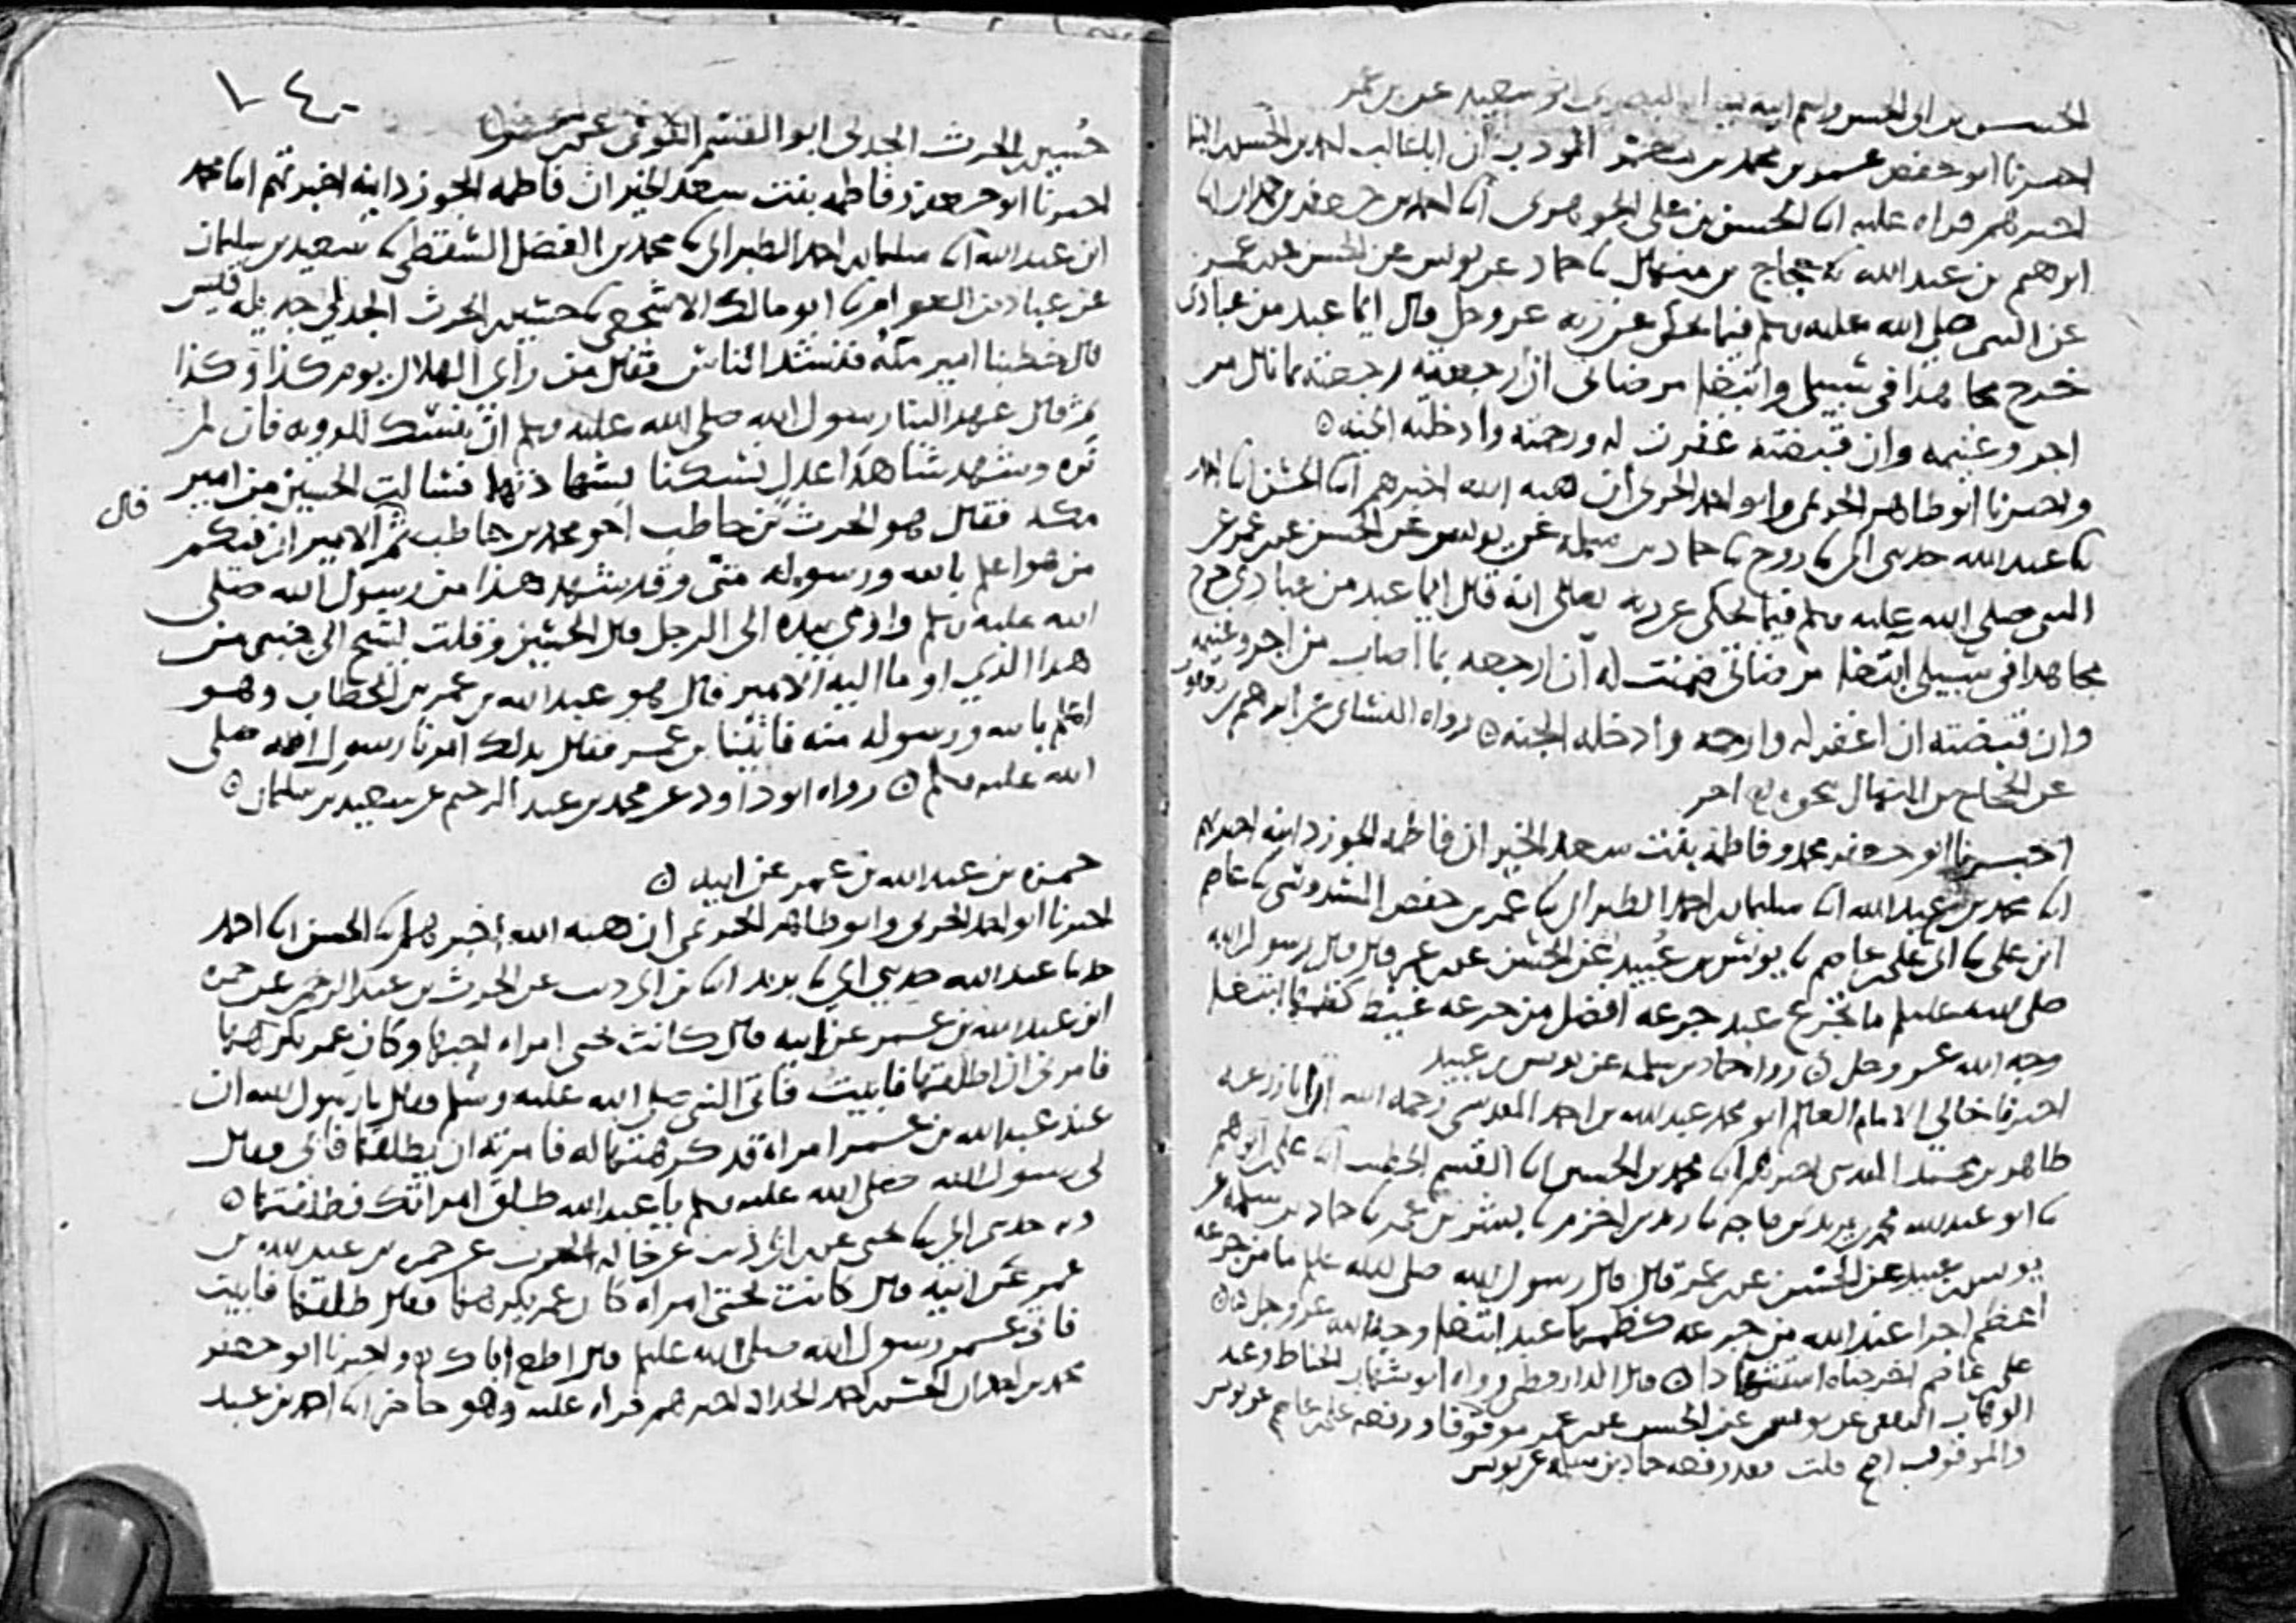 الحسن بن ابي الحسن واسم ابيه يسار البصري ابو سعيد عن بن عمر
اخبرنا ابو حفص عمر بن محمد بن معمر المودب ان اباغالب احمد بن الحسن البنا
اخبرهم قراه عليه انا الحسن بن علي الجوهري انا احمد بن جعفر بن حمدان نا
ابرهيم بن عبد الله نا حجاج بن منهال نا حماد عن يونس عن الحسن عن بن عمر
عن النبي صلي الله عليه وسلم فيما يحكي عن ربه عز وجل قال ايما عبد من عبادي
خرج مجاهدا في سبيلي وابتغا مرضاتي ان ارجعته ارجعته بما نال من
اجر وغنيمه وان قبضته غفرت له ورحمته وادخلته الجنه
واخبرنا ابو طاهر الحريمي وابو احمد الحربي أن هبه الله اخبرهم انا الحسن انا احمد
نا عبد الله حدثني ابي نا روح نا حماد بن سلمه عن يونس عن الحسن عن بن عمر عن
النبي صلي الله عليه وسلم فيما يحكي عن ربه تعالي انه قال ايما عبد من عبادي خرج
مجاهدا في سبيلي ابتغا مرضاتي ضمنت له أن ارجعه بما اصاب من اجر وغنيمه
وان قبضته ان اغفر له وارحمه وادخله الجنه رواه النسائي عن ابرهيم بن يعقوب
عن الحجاج بن المنهال بحوه اخر
اخبرنا ابو جعفر محمد وفاطمه بنت سعد الخير ان فاطمه الجوزدانيه اخبرتهم
انا محمد بن عبد الله انا سليمان بن احمد الطبراني نا عمر بن حفص السدوسي نا عاصم
ابن علي نا ابي علي بن عاصم نا يونس بن عبيد عن الحسن عن بن عمر قال قال رسول الله
صلي الله عليه وسلم ما تجرع عبد جرعه افضل من جرعه غيظ كظمها ابتغا
وجه الله عز وجل رواه حماد بن سلمه عن يونس بن عبيد
اخبرنا خالي الامام العالم ابو محمد عبد الله بن احمد المقدسي رحمه الله أن ابا زرعه
طاهر بن محمد المقدسي اخبرهم انا محمد بن الحسين انا القسم الخطيب انا علي بن ابرهيم
نا ابو عبد الله محمد بن يزيد بن ماجه نا زيد بن اخزم نا بشر بن عمر نا حماد بن سلمه عن
يونس بن عبيد عن الحسن عن بن عمر قال قال رسول الله صلي الله عليه وسلم ما من جرعه
اعظم اجرا عند الله من جرعه كظمها عبد ابتغا وجه الله عز وجل
علي بن عاصم اخرجناه استشهادا قال الدارقطني رواه ابو شهاب الحناط وعبد
الوهاب الثقفي عن يونس عن الحسن عن بن عمر موقوفا ورفعه علي بن عاصم عن يونس
والموقوف اصح قلت وقد رفعه حماد بن سلمه عن يونس
١٤٠
حسين بن الحرث الجدلي ابو القسم الكوفي عن بن عمر
اخبرنا ابو جعفر وفاطمه بنت سعد الخير ان فاطمه الجوزدانيه اخبرتهم انا محمد
ابن عبد الله انا سليمان بن احمد الطبراني نا محمد بن الفضل السقطي نا سعيد بن سليمان
عن عباد بن العوام نا ابو مالك الاشجعي نا حسين بن الحرث الجدلي جديله قيس
قال خطبنا امير مكه فنشد الناس فقال من رأي الهلال يوم كذا وكذا
ثم قال عهد الينا رسول الله صلي الله عليه وسلم ان ننسك للرويه فان لم
نره وشهد شاهدا عدل نسكنا بشهادتهما فسالت الحسين من امير
مكه فقال هو الحرث بن حاطب اخو محمد بن حاطب ثم قال الامير ان فيكم
من هو اعلم بالله ورسوله مني وقد شهد هذا من رسول الله صلي
الله عليه وسلم واومي بيده الي الرجل قال الحسين وقلت لشيخ الي جنبي من
هذا الذي اوما اليه الامير قال هو عبد الله بن عمر بن الخطاب وهو
اعلم بالله ورسوله منه فاتينا بن عمر فقال بذلك امرنا رسول الله صلي
الله عليه وسلم رواه ابو داود عن محمد بن عبد الرحيم عن سعيد بن سليمان
حمزه بن عبد الله بن عمر عن ابيه
اخبرنا ابو احمد الحربي وابو طاهر الحريمي ان هبه الله اخبرهم انا الحسن انا احمد
حدثنا عبد الله حدثني ابي نا يزيد انا بن ابي ذيب عن الحرث بن عبد الرحمن عن حمزه
ابن عبد الله بن عمر عن ابيه قال كانت تحتي امراه احبها وكان عمر يكرهها
فامرني ان اطلقها فابيت فاتي النبي صلي الله عليه وسلم فقال يا رسول الله ان
عند عبد الله بن عمر امراة قد كرهتها له فامرته ان يطلقها فابي فقال
لي رسول الله صلي الله عليه وسلم يا عبد الله طلق امراتك فطلقتها
وبه حدثني ابي نا يحيي عن بن ابي ذيب عن خاله الحرث عن حمزه بن عبد الله بن
عمر عن ابيه قال كانت تحتي امراه كان عمر يكرهها فقال طلقها فابيت
فاتي عمر رسول الله صلي الله عليه وسلم فقال اطع اباك واخبرنا ابو جعفر
محمد بن احمد ان الحسن بن احمد الحداد اخبرهم قراه عليه وهو حاضر انا احمد بن عبد